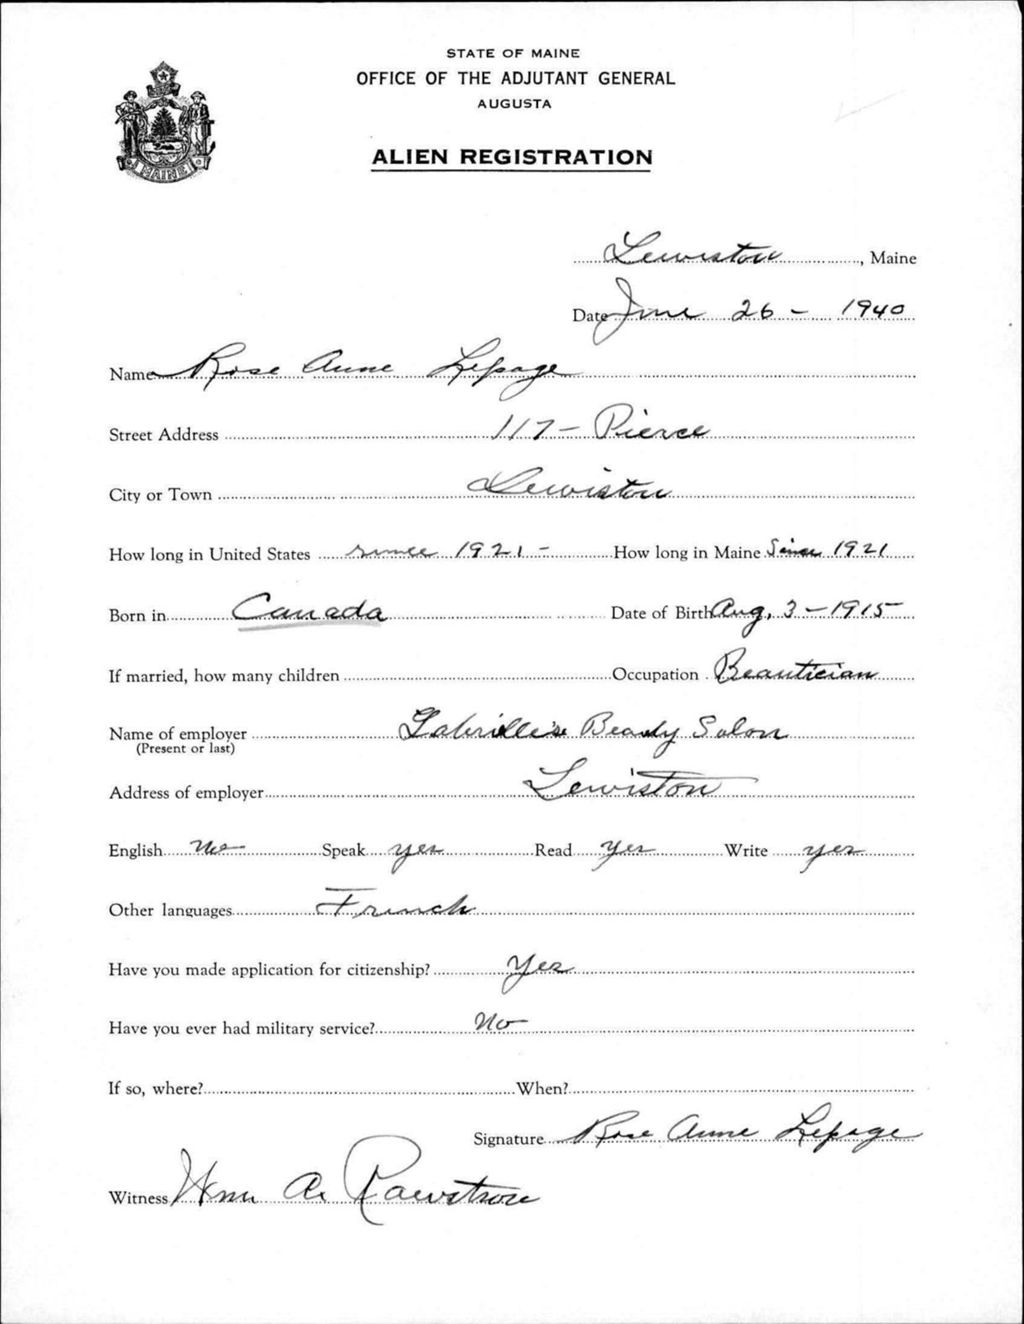 STATE OF MAINE
OFFICE OF THE ADJUTANT GENERAL
AUGUSTA
ALIEN REGISTRATION
MAINE
Lewiston, Maine
Date June 26 - 1940
Name Rose Anne Lepage
Street Address 117 - Pierce
City or Town Lewiston
How long in United States since 1921 - How long in Maine Since 1921
Born in Canada Date of Birth Aug, 3 - 1915
If married, how many children Occupation Beautician
Name of employer Gabrille's Beauty Salon
(Present or last)
Address of employer Lewiston
English No Speak yes Read yes Write yes
Other languages French
Have you made application for citizenship? Yes
Have you ever had military service? No
If so, where? When?
Signature Rose Anne Lepage
Witness Wm A. Rawstron